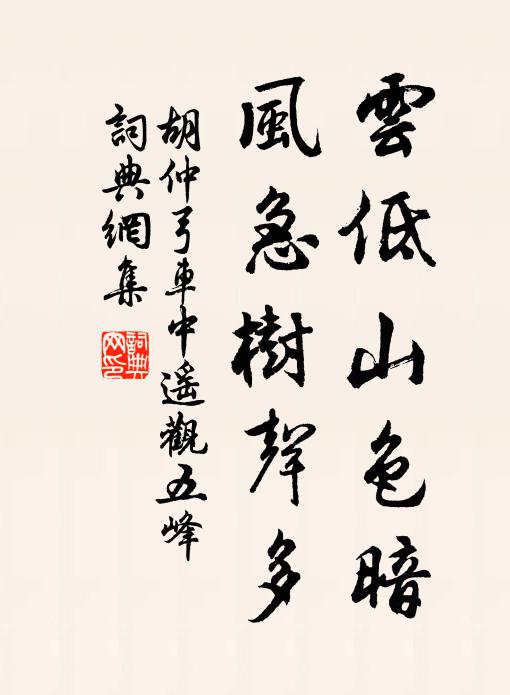 雲低山色暗
風急樹聲多
胡仲弓車中遥觀五峰
詞典網集
詞典
网印